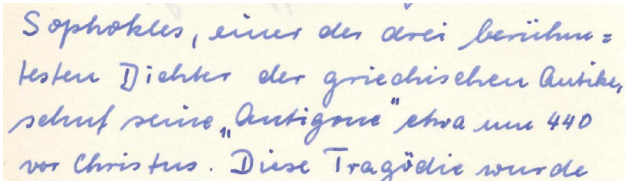 Sophokles, einer der drei berühm=
testen Dichter der griechischen Antike,
schuf seine „Antigone" etwa um 440
vor Christus. Diese Tragödie wurde